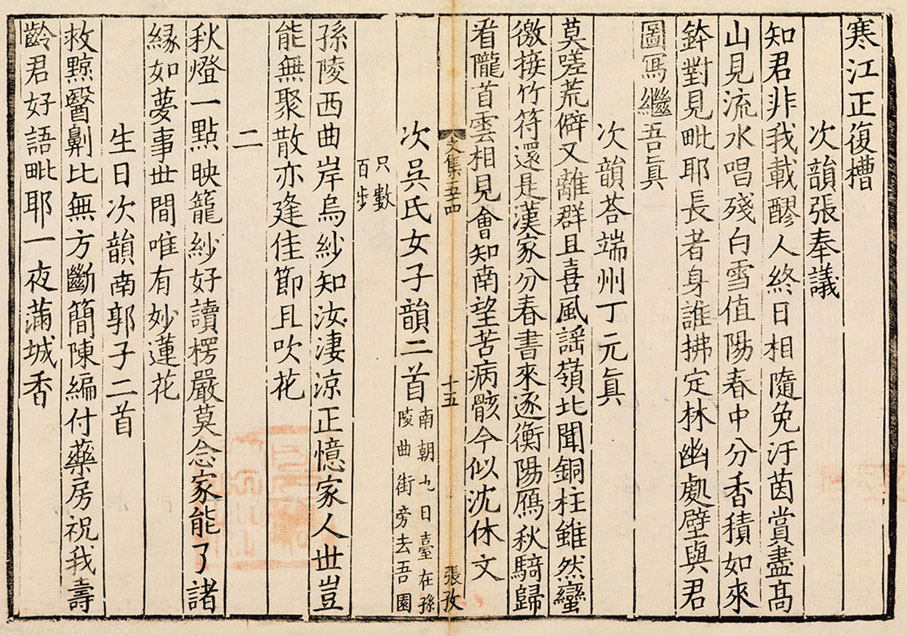 寒江正復槽
次韻張奉議
知君非我載醪人終日相隨免汙茵賞盡高
山見流水唱殘白雪值陽春中分香積如來
鉢對見毗耶長者身誰拂定林幽處壁與君
圖寫繼吾真
次韻荅端州丁元真
莫嗟荒僻又離群且喜風謡嶺北聞銅柱雖然蠻
徼接竹符還是漢家分春書來逐衡陽鴈秋騎歸
看隴首雲相見會知南望苦病骸今似沈休文
文集五十四
十五
張孜
次吳氏女子韻二首
南朝九日臺在孫
陵曲街旁去吾園
只數
百步
孫陵西曲岸烏紗知汝淒涼正憶家人世豈
能無聚散亦逢佳節且吹花
二
秋燈一點映籠紗好讀楞嚴莫念家能了諸
緣如夢事世間唯有妙蓮花
生日次韻南郭子二首
救黥醫劓比無方斷簡陳編付藥房祝我壽
齡君好語毗耶一夜滿城香